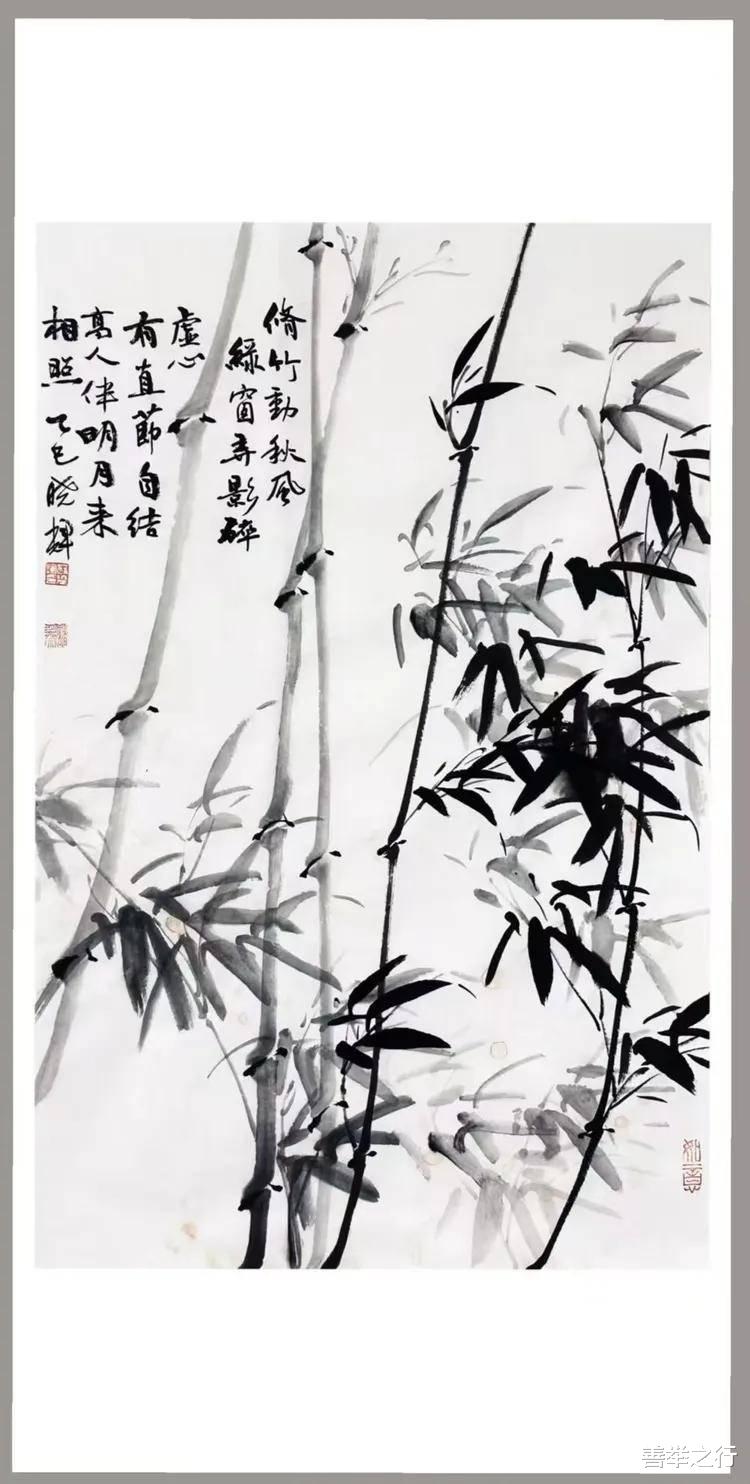 脩竹動秋風
綠窗弄影碎
虛心
有直節自結
高人伴明月来
相照 乙巳晓輝
如意
善举之行